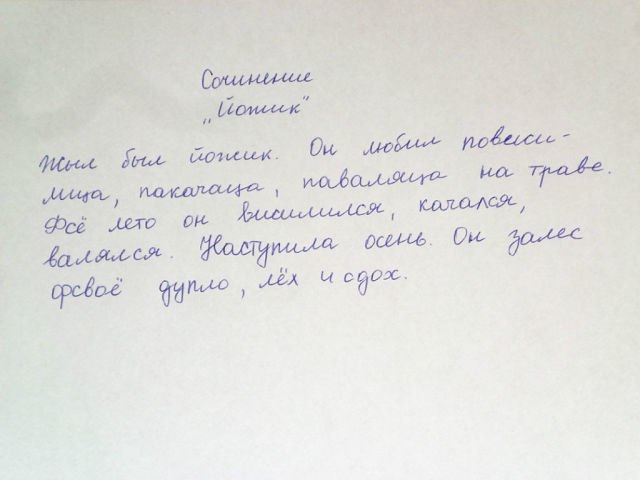 Сочинение
„Йожик“
Жыл был йожик. Он любил повиси-
лица, пакачаца, паваляца на траве.
Фсё лето он висилился, качался,
валялся. Наступила осень. Он залес
фсваё дупло, лёх и сдох.